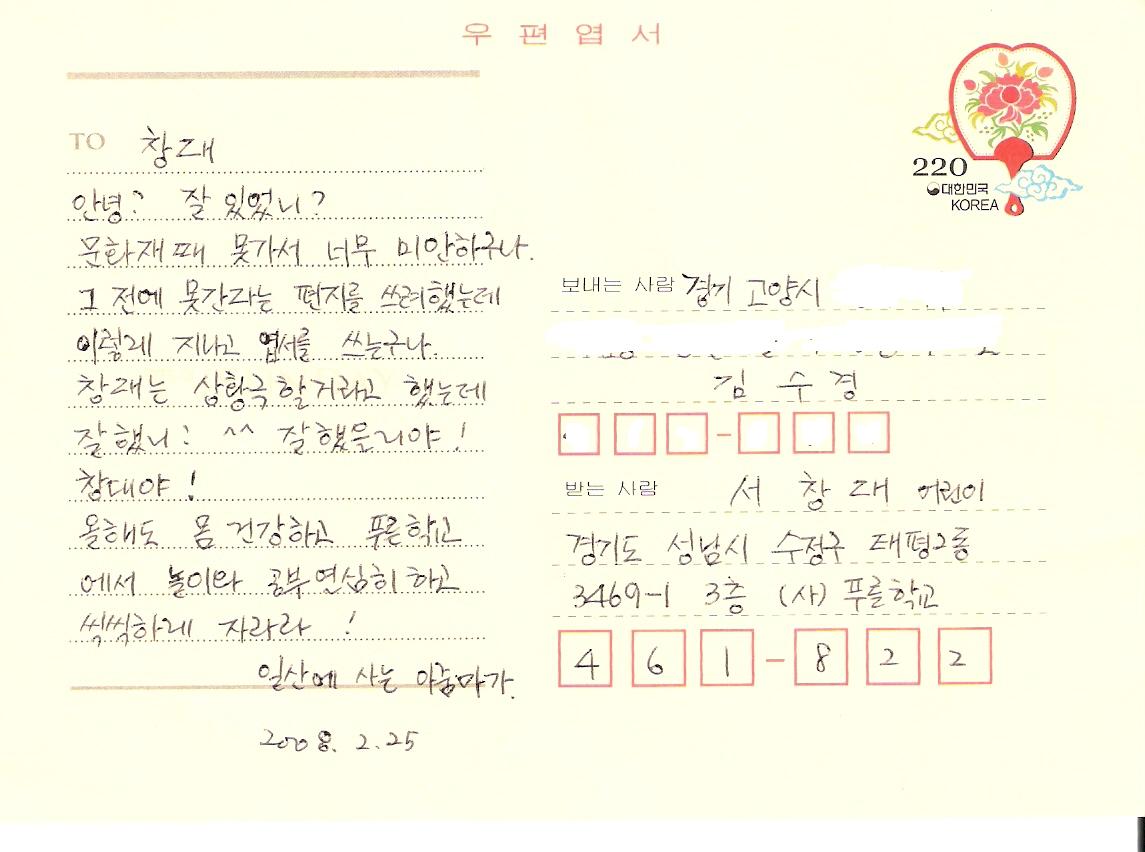 우편엽서
TO 창대
안녕? 잘 있었니?
문화재때 못가서 너무 미안하구나.
그 전에 못간다는 편지를 쓰려했는데
이렇게 지나고 엽서를 쓰는구나.
창대는 상황극할거라고 했는데
잘했니? ^^ 잘했을거야!
창대야!
올해도 몸 건강하고 푸른학교
에서 놀이와 공부 열심히 하고
씩씩하게 자라라!
일산에 사는 아줌마가.
2008. 2. 25
220
대한민국
KOREA
보내는 사람 경기 고양시
김 수 경
받는 사람 서 창 대 어린이
경기도 성남시 수정구 태평2동
3469-1 3층 (사) 푸른학교
461-822